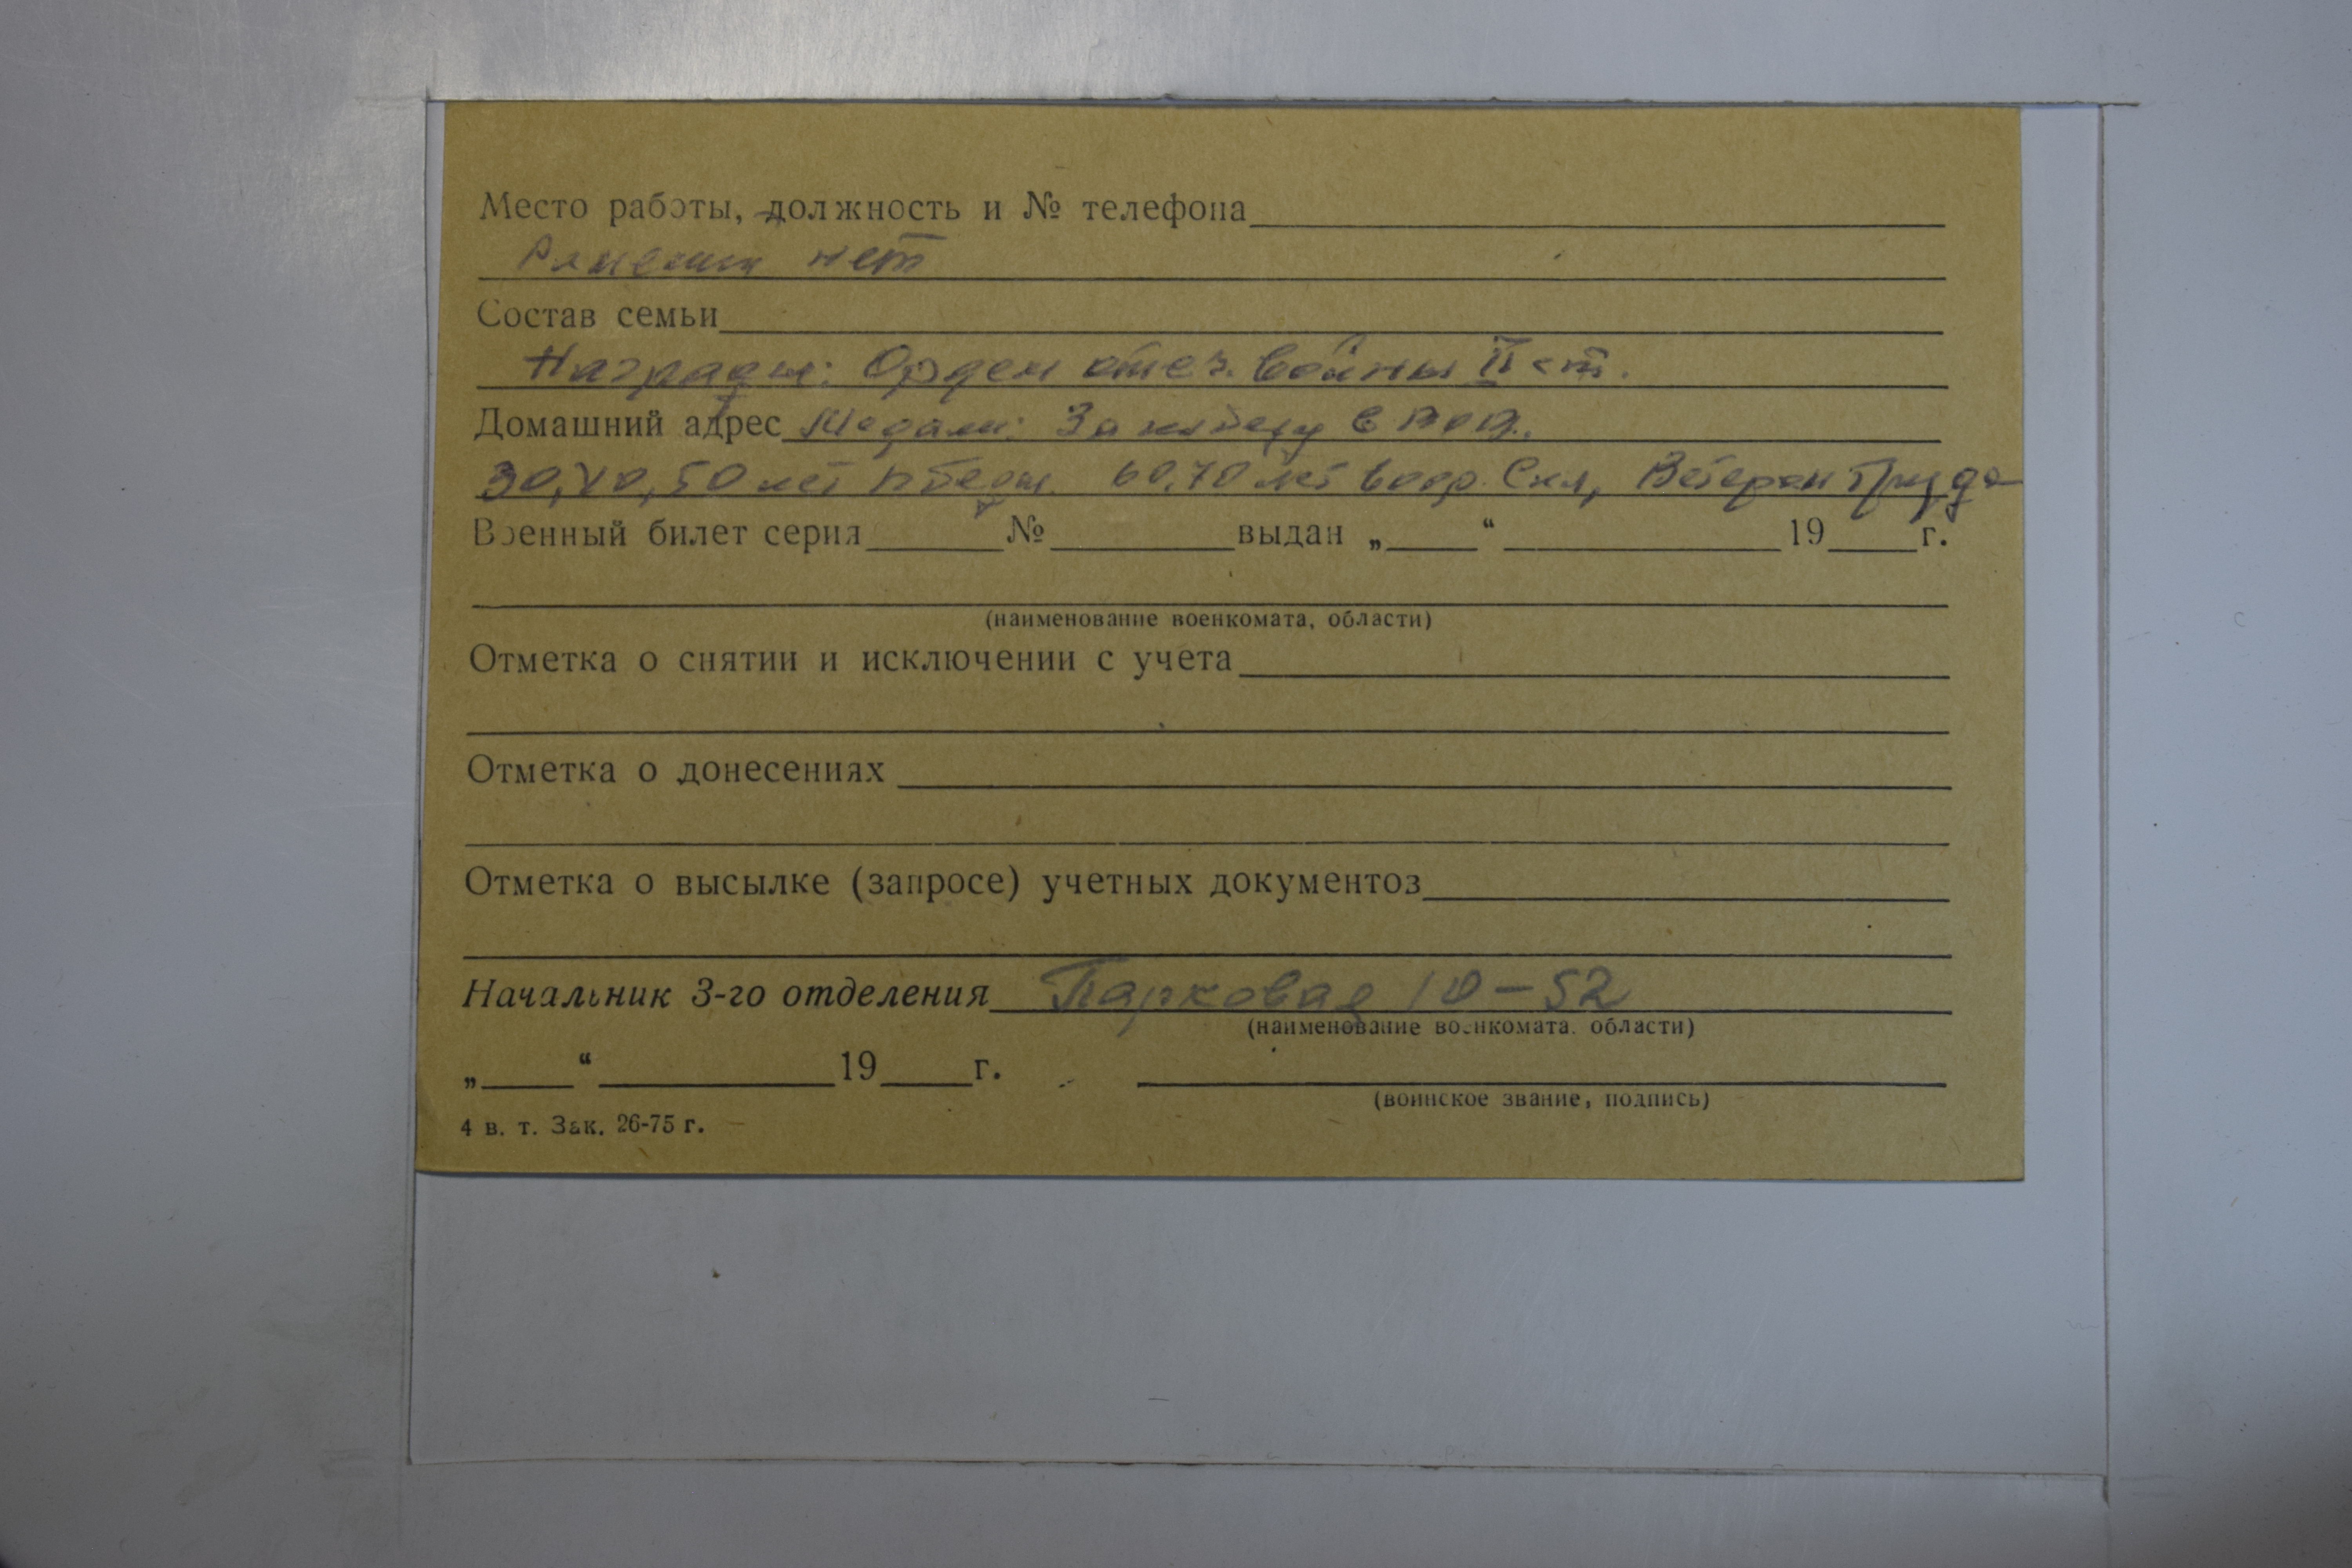 Место работы, должность и № телефона
Ранений нет
Состав семьи
Награды: Орден отеч. войны II ст.
Домашний адрес Медали: За победу
30, 40, 50 лет Победы. 60, 70 лет Воор. Сил, Ветеран Труда
Военный билет серия № выдан „ “ 19 г.
(наименование военкомата, области)
Отметка о снятии и исключении с учета
Отметка о донесениях
Отметка о высылке (запросе) учетных документов
Начальник 3-го отделения Парковая 10-52
(наименование военкомата, области)
„ “ 19 г.
(воинское звание, подпись)
4 в. т. Зак. 26-75 г.